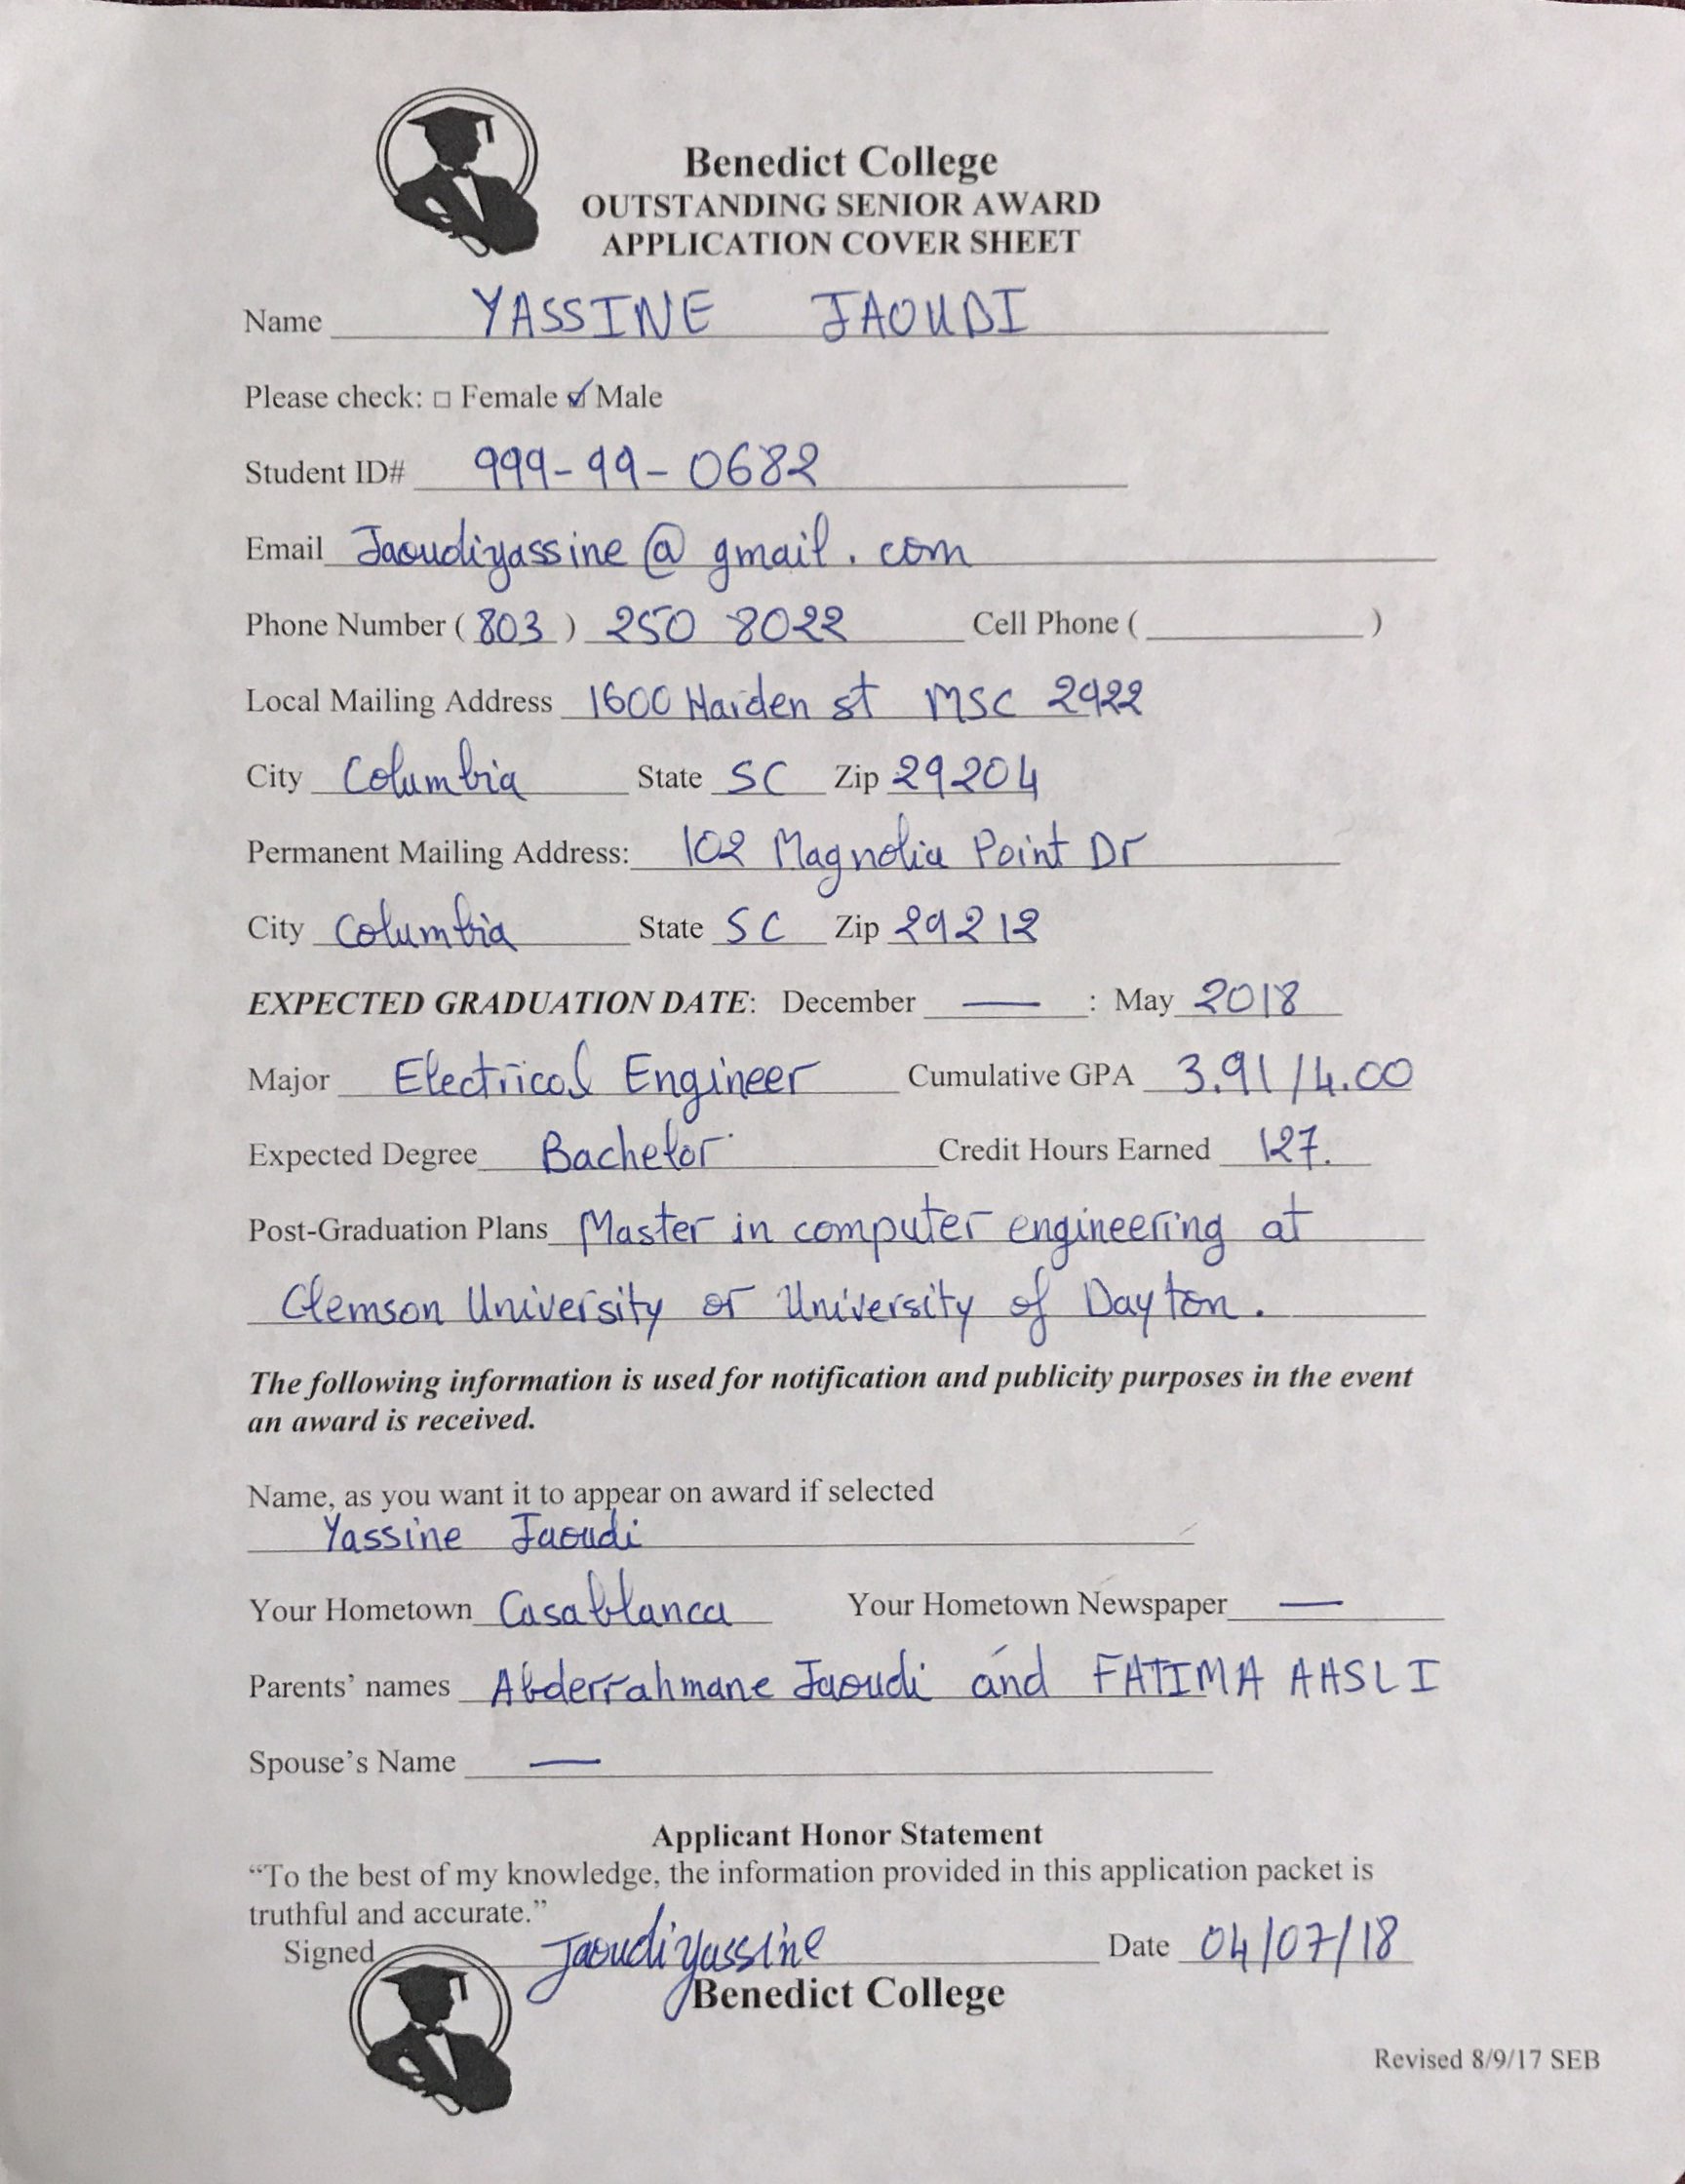 Benedict College
OUTSTANDING SENIOR AWARD
APPLICATION COVER SHEET
Name YASSINE JAOUDI
Please check: □ Female ☑ Male
Student ID# 999-99-0682
Email Jaoudiyassine@gmail.com
Phone Number (803) 250 8022 Cell Phone ( )
Local Mailing Address 1600 Harden st MSC 2922
City Columbia State SC Zip 29204
Permanent Mailing Address: 102 Magnolia Point Dr
City Columbia State SC Zip 29212
EXPECTED GRADUATION DATE: December — : May 2018
Major Electrical Engineer Cumulative GPA 3.91/4.00
Expected Degree Bachelor Credit Hours Earned 127.
Post-Graduation Plans Master in computer engineering at
Clemson University or University of Dayton.
The following information is used for notification and publicity purposes in the event
an award is received.
Name, as you want it to appear on award if selected
Yassine Jaoudi
Your Hometown Casablanca Your Hometown Newspaper —
Parents' names Abderrahmane Jaoudi and FATIMA AASLI
Spouse's Name —
Applicant Honor Statement
“To the best of my knowledge, the information provided in this application packet is
truthful and accurate.”
Signed Jaoudiyassine Date 04/07/18
Benedict College
Revised 8/9/17 SEB